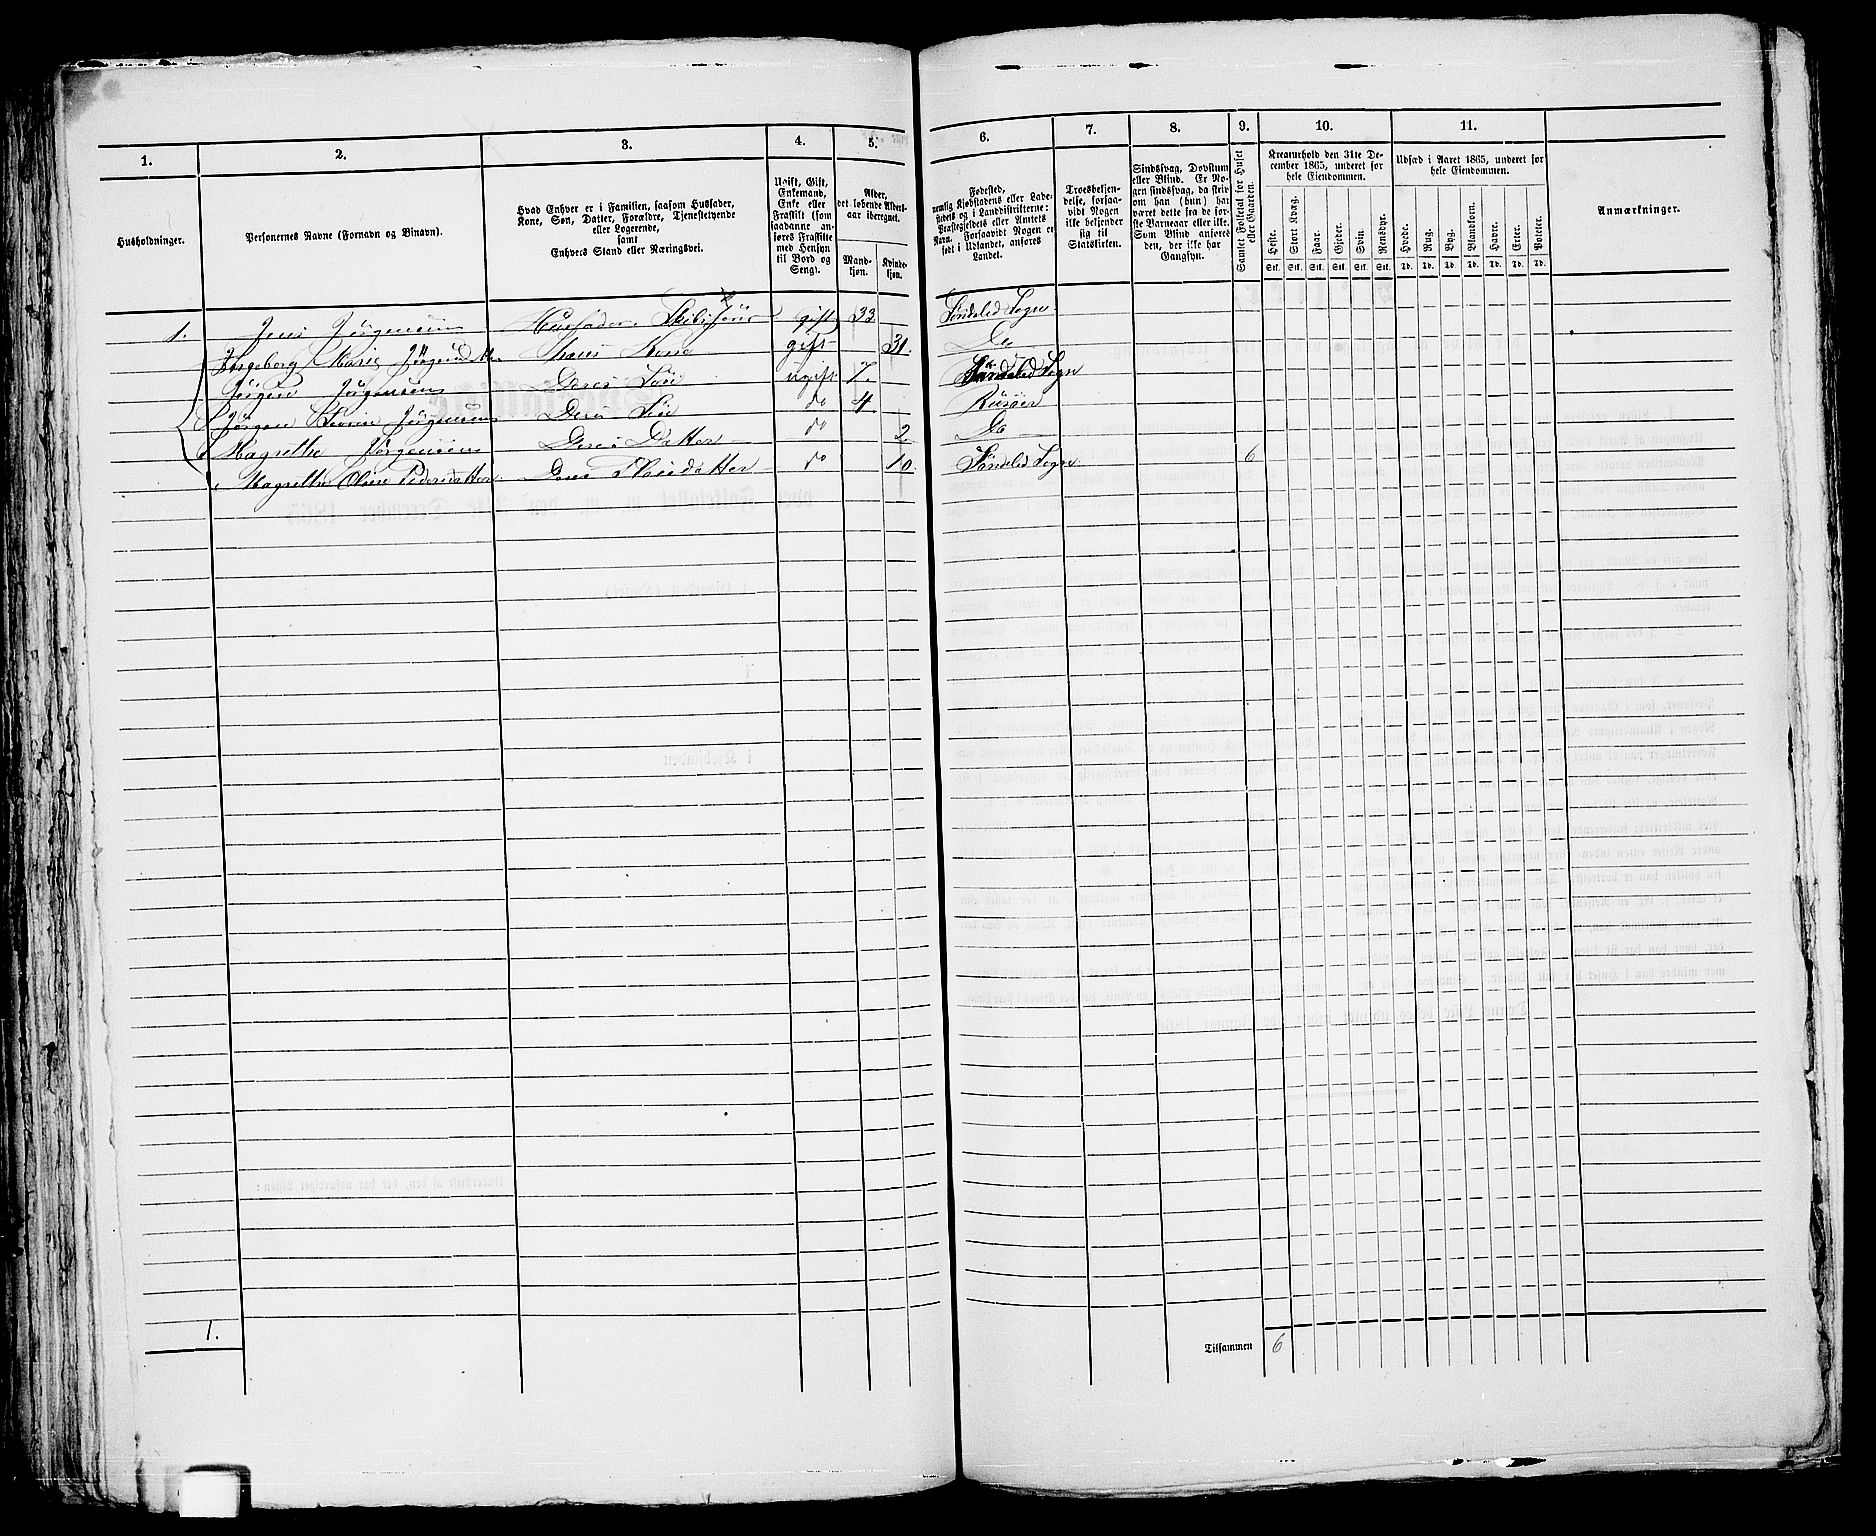 1. 2. 3. 4. 5. 6. 7. 8. 9. 10. 11.
Husholdninger.
Personernes Navne (Fornavn og Binavn).
Hvad Enhver er i Familien, saasom Husfader,
Kone, Søn, Datter, Forældre, Tjenestetyende
eller Logerende,
samt
Enhvers Stand eller Næringsvei.
Ugift, Gift,
Enkemand,
Enke eller
Fraskilt (som
saadanne an-
føres Fraskilte
med Hensyn
til Bord og
Seng).
Alder,
det løbende Alders-
aar iberegnet.
Mand-
kjøn.
Kvinde-
kjøn.
Fødested,
nemlig Kjøbstadens eller Lade-
stedets og i Landdistrikterne:
Præstegjeldets eller Amtets
Navn. Forsaavidt Nogen er
født i Udlandet, anføres
Landet.
Troesbekjen-
delse, forsaa-
vidt Nogen
ikke bekjender
sig til
Statskirken.
Sindssvag, Døvstum
eller Blind. Er No-
gen sindssvag, da skriv
om han (hun) har
været dette fra de før-
ste Barneaar eller ikke.
Som Blind anføres
den, der ikke har
Gangsyn.
Samlet Folketal for Huset
eller Gaarden.
Kreaturhold den 31te De-
cember 1865, underet for
hele Eiendommen.
Heste. Stort Kvæg. Faar. Gjeder. Svin. Rensdyr.
Stk. Stk. Stk. Stk. Stk. Stk.
Udsæd i Aaret 1865, underet for
hele Eiendommen.
Hvede. Rug. Byg. Blandkorn. Havre. Erter. Poteter.
Td. Td. Td. Td. Td. Td. Td.
Anmærkninger.
1. Jens Jørgensen Husfader gift 33. Søndeled Sogn
Ingeborg Marie Jørgensdtr. Hans Kone gift 31. Do
Jørgen Jørgensen Deres Søn ugift 7. Søndeled Sogn
Jørgen Jørgensen Deres Søn do 4 Risøer
Magrethe Jørgensen Deres Datter do 2. Do
Magrethe Oline Pedersdatter Deres Pleiedatter do 10. Søndeled Sogn 6
1.
Tilsammen 6